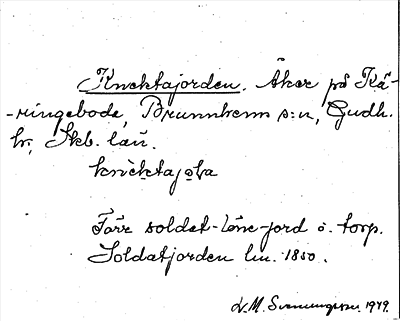 Knektajorden. Åker på Kä-
-ringebode, Brunnhems s:n, Gudh.
hr, Skb. län.
Förr soldat-löne-jord o. torp.
Soldatjorden lm. 1850.
L.M. Svenungsson. 1949.